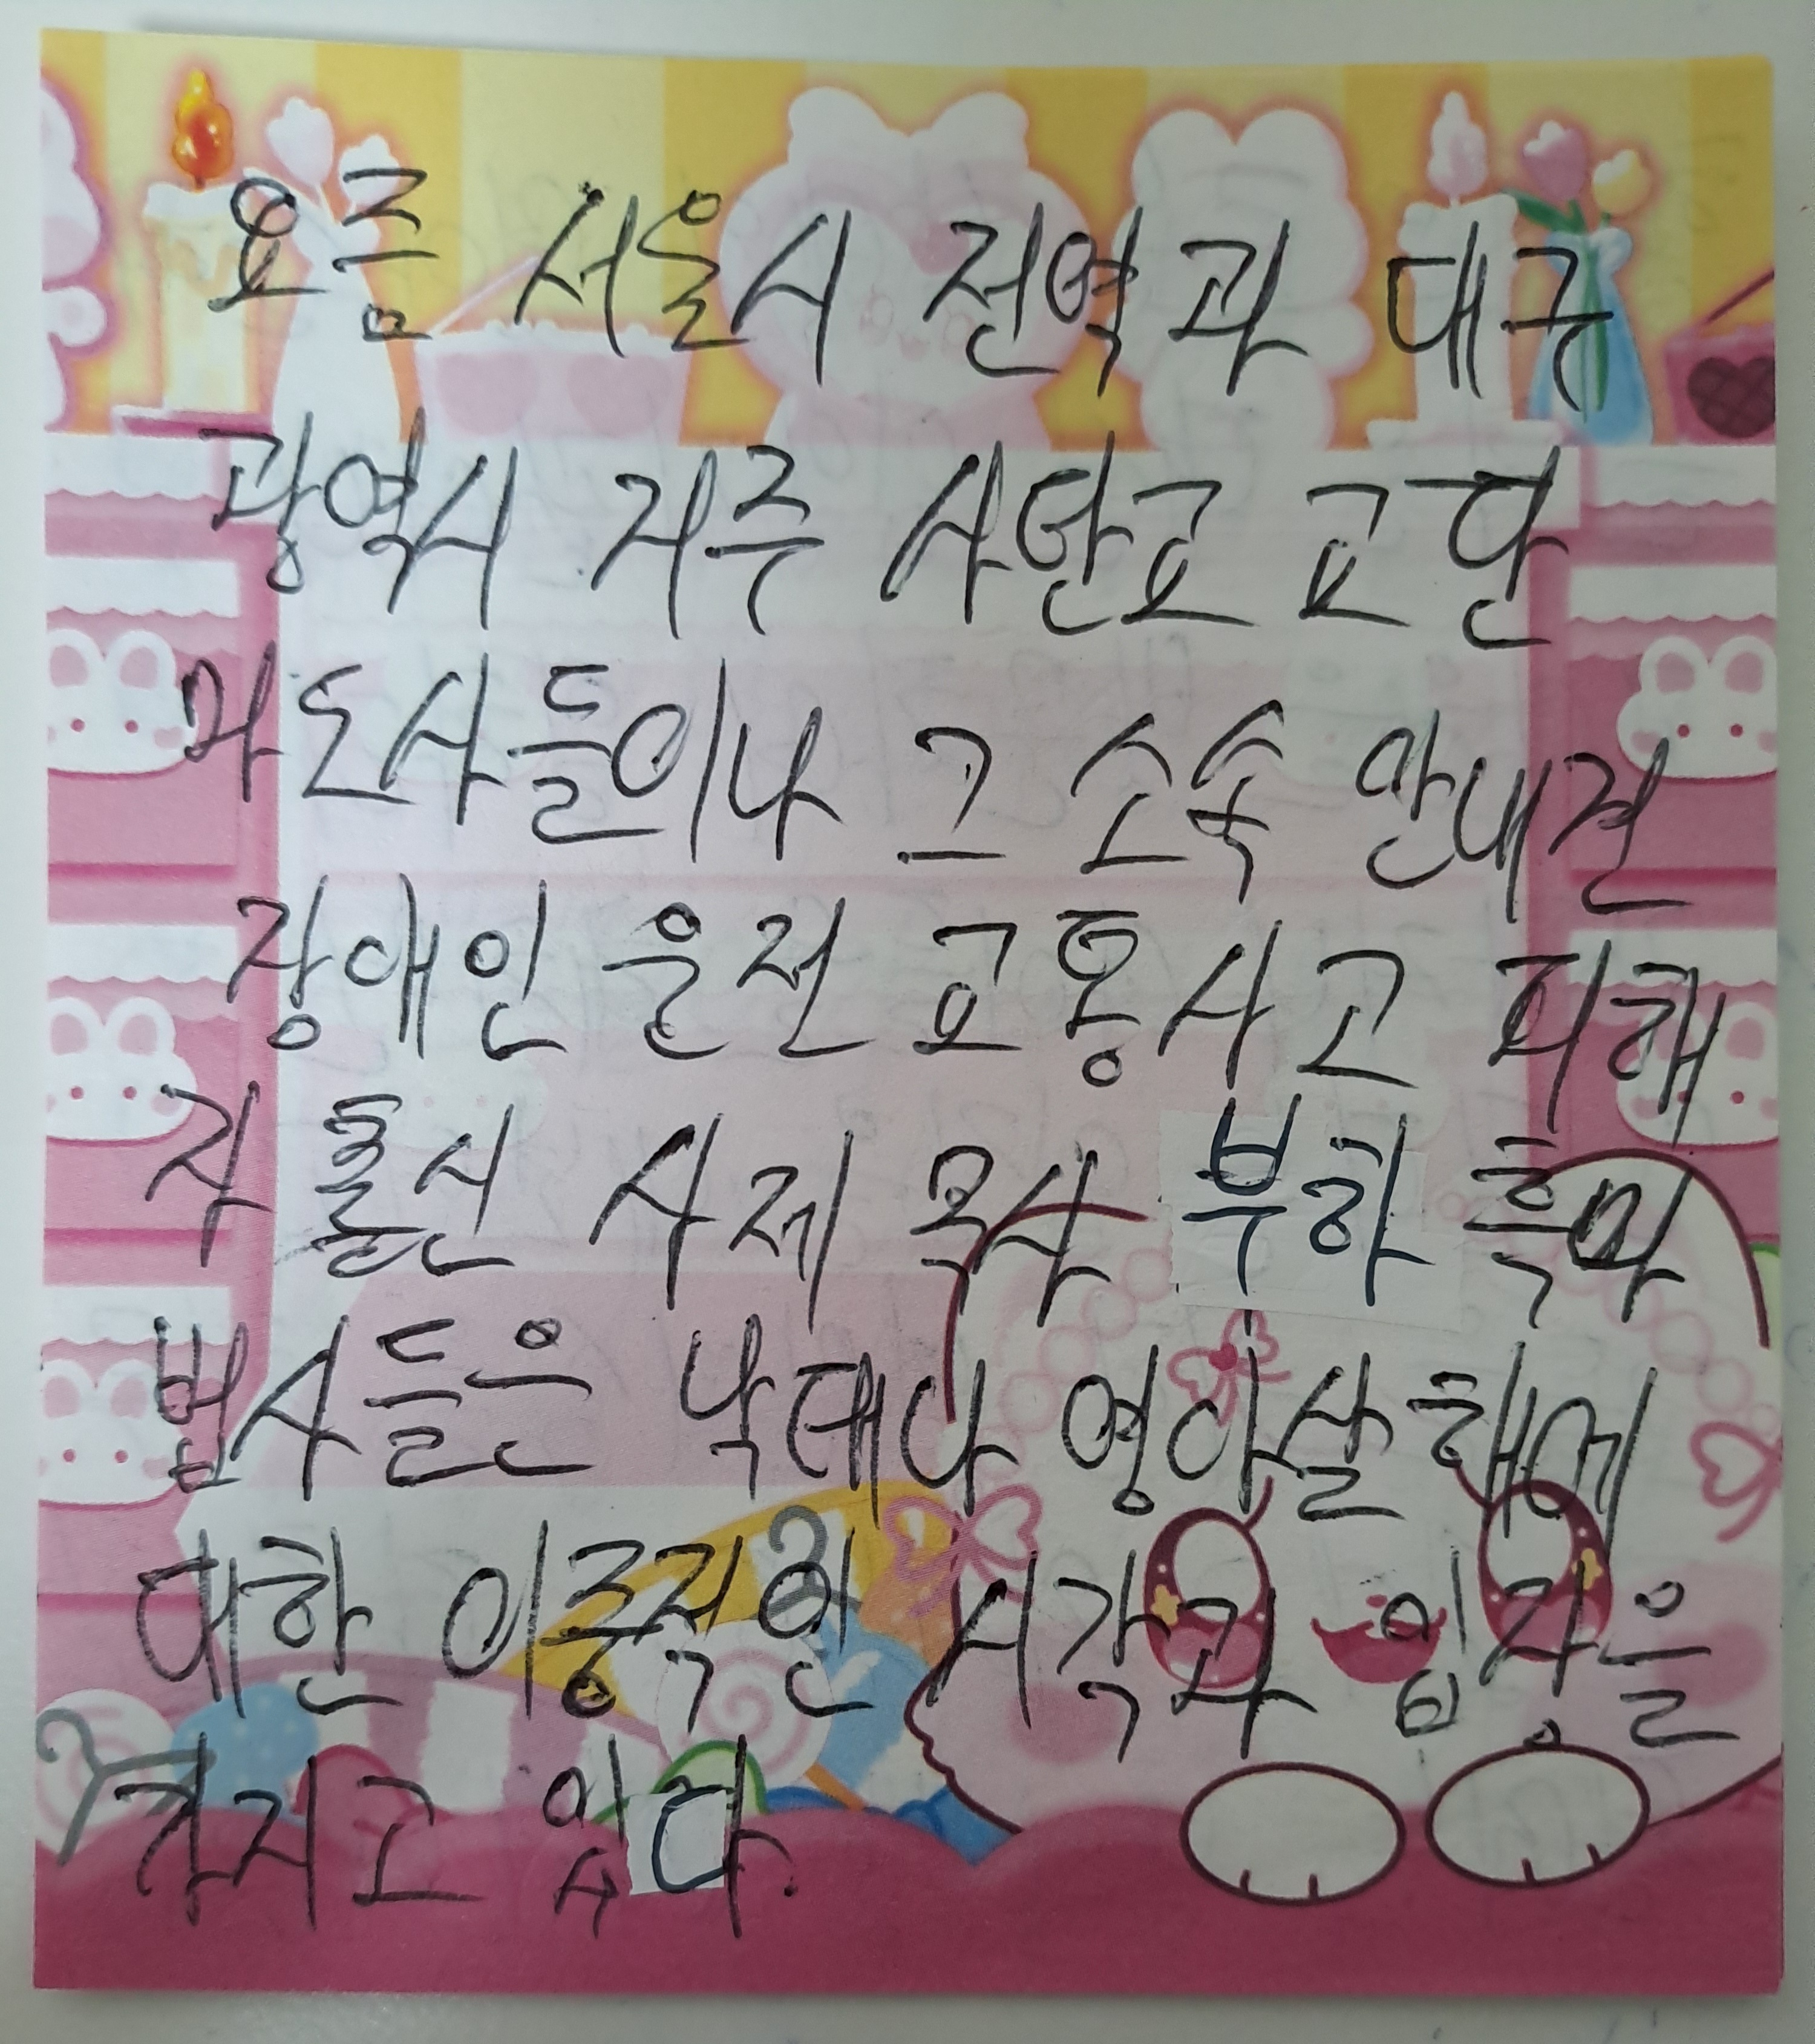 요즘 서울시 전역과 대구
광역시 거주 사탄교 교단
마도사들이나 그 소속 안내견
장애인 운전 교통사고 피해
자 출신 사제 목사 부하 흑마
법사들은 낙태나 영아살해에
대한 이중적인 시각과 입장을
가지고 있다.